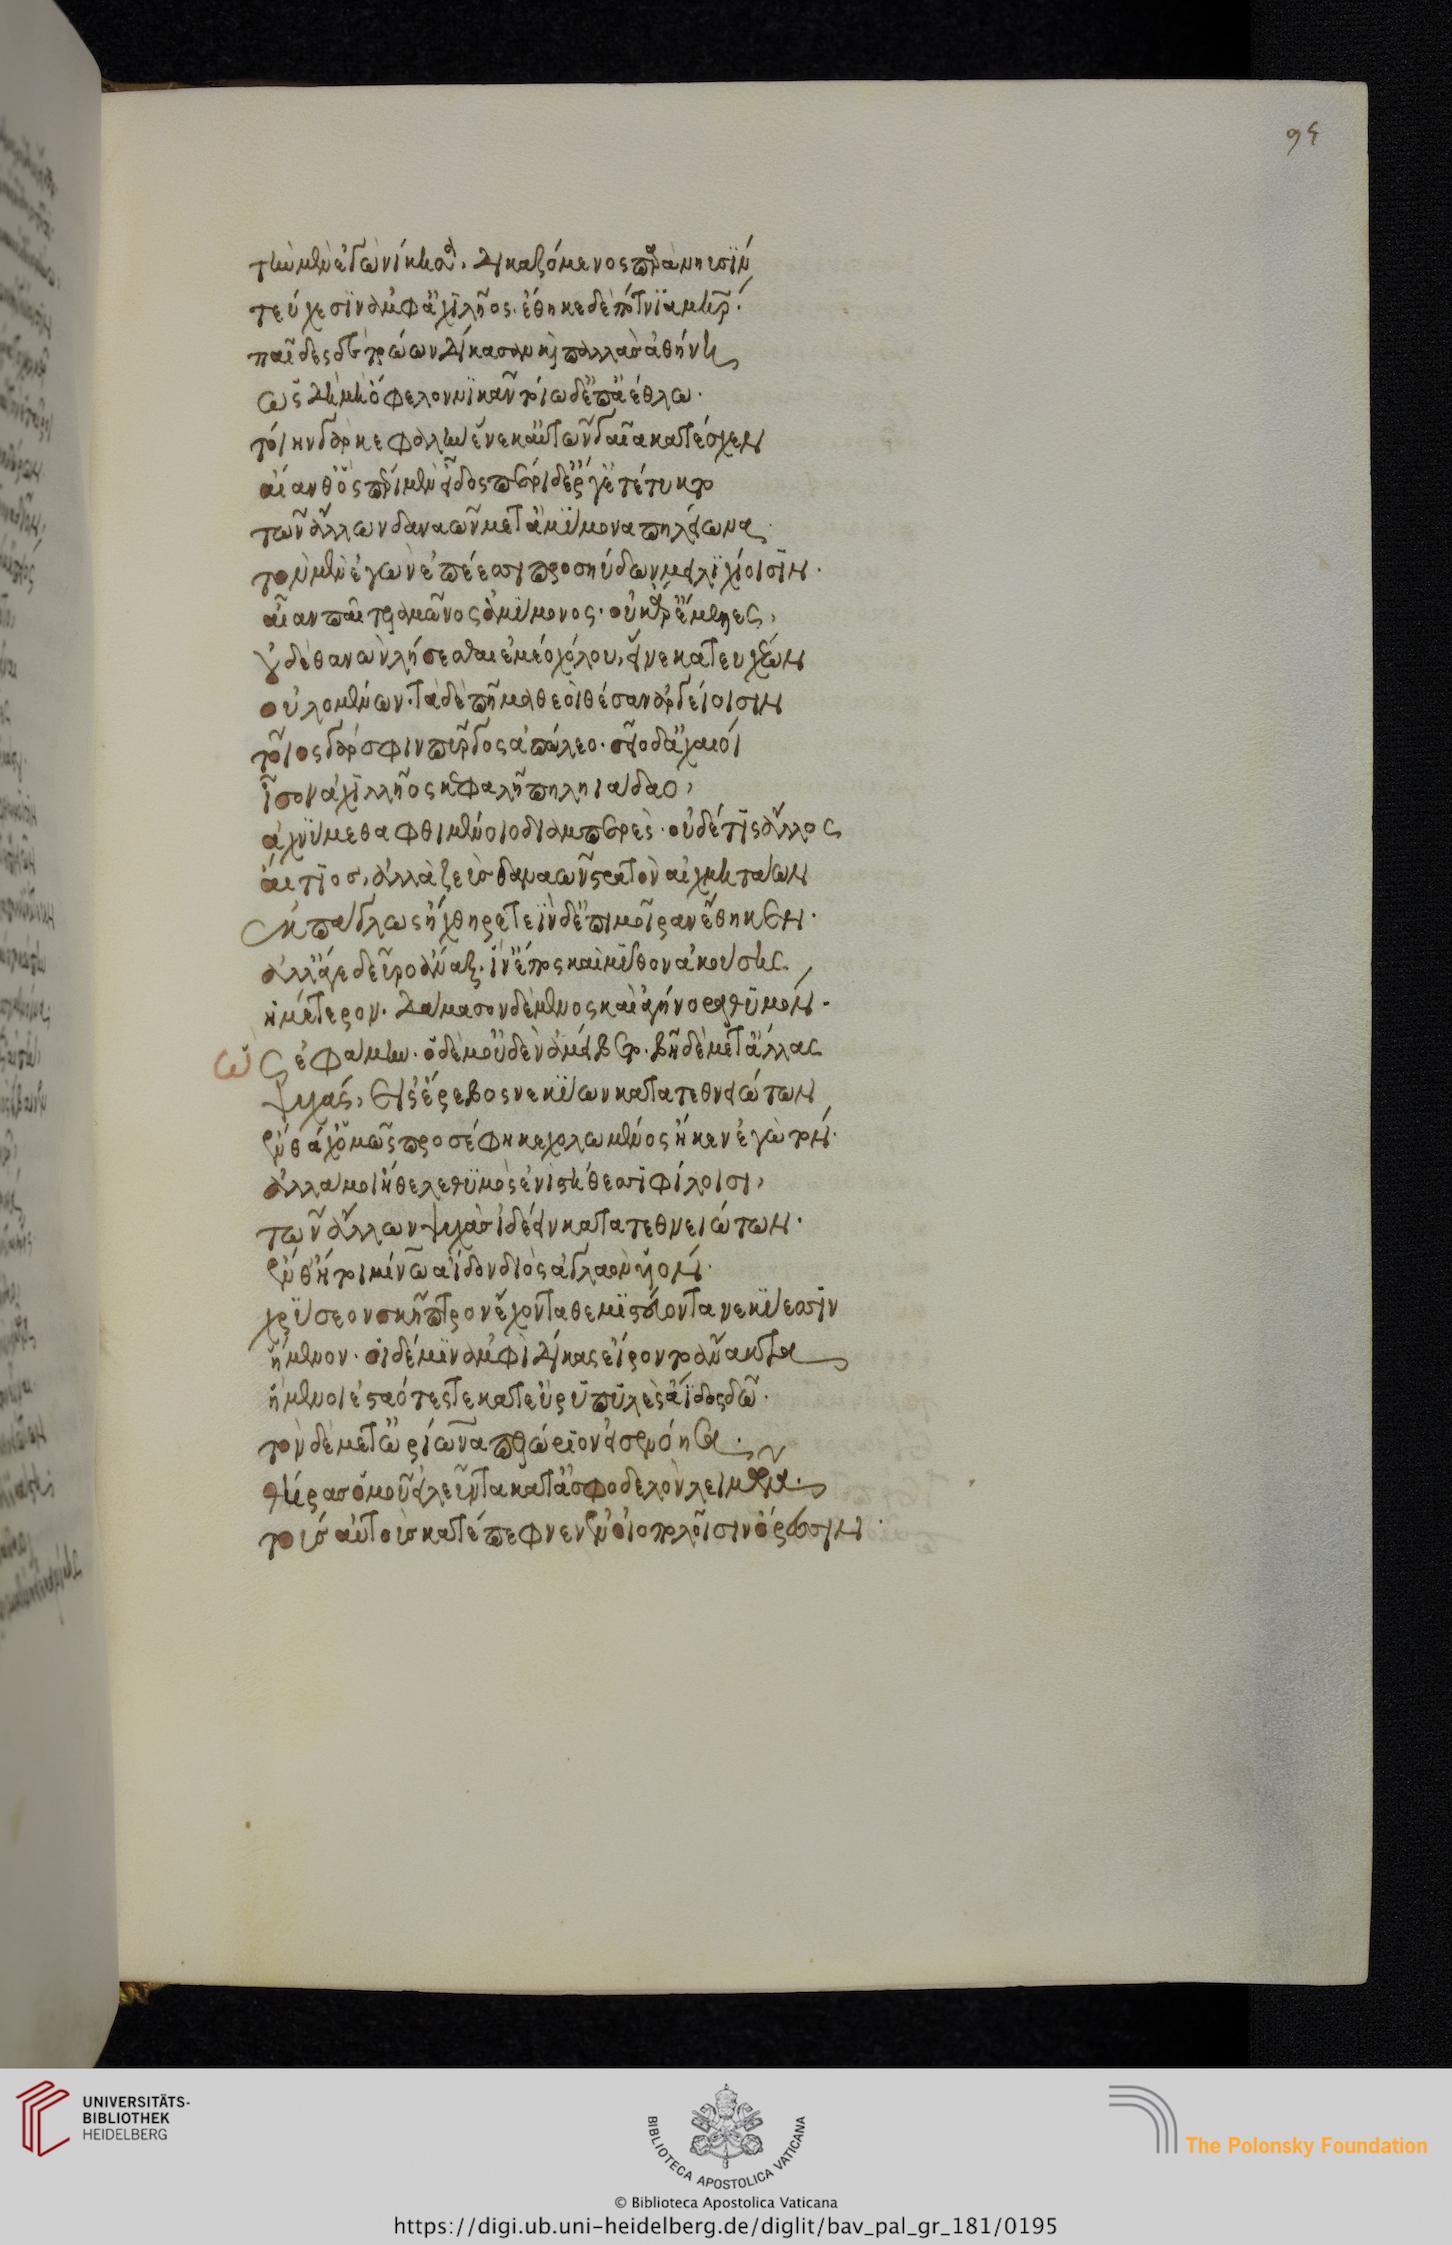 95
τὴν μὲν ἐγὼ νίκησα, δικαζόμενος παρὰ νηυσὶν
τεύχεσιν ἀμφ' ἀχιλῆος. ἔθηκε δὲ πότνια μήτηρ.
παῖδες δὲ τρώων δίκασαν καὶ παλλὰς ἀθήνη
ὡς δὴ μὴ ὄφελον νικᾶν τοιῷδ' ἐπ' ἀέθλω.
τοίην γὰρ κεφαλὴν ἕνεκ' αὐτῶν γαῖα κατέσχεν
αἴανθ' ὃς περὶ μὲν εἶδος περὶ δ' ἔργ' ἐτέτυκτο
τῶν ἄλλων δαναῶν μετ' ἀμύμονα πηλείωνα.
τὸν μὲν ἐγὼν ἐπέεσσι προσηύδων μειλιχίοισιν.
αἶαν παῖ τελαμῶνος ἀμύμονος. οὐκ ἄρ' ἔμελλες,
οὐδὲ θανὼν λήσεσθαι ἐμέο χόλου, εἵνεκα τευχέων
οὐλομένων. τὰ δὲ πῆμα θεοὶ θέσαν ἀργείοισιν
τοῖος γάρ σφιν πύργος ἀπώλεο. σεῖο δ' ἀχαιοί
ἶσον ἀχιλλῆος κεφαλῆ πηληϊάδαο,
ἀχνύμεθα φθιμένοιο διαμπερὲς. οὐδέ τις ἄλλος
αἴτιος, ἀλλὰ ζεὺς δαναῶν στρατὸν αἰχμητάων
ἐκπάγλως ἤχθηρε τεῒν δ' ἐπὶ μοῖραν ἔθηκεν.
ἀλλ' ἄγε δεῦρο ἄναξ. ἵν' ἔπος καὶ μῦθον ἀκούσης
ἡμέτερον. δάμασον δὲ μένος καὶ ἀγήνορα θυμόν.
ὣς ἐφάμην. ὁ δέ μ' οὐδὲν ἀμείβετο. βῆ δὲ μετ' ἄλλας
ψυχάς, εἰς ἔρεβος νεκύων κατατεθνειώτων
ἔνθά χ' ὅμως προσέφη κεχολωμένος ἤ κεν ἐγὼ τόν.
ἀλλά μοι ἤθελε θυμὸς ἐνὶ στήθεσσι φίλοισι,
τῶν ἄλλων ψυχὰς ἰδέειν κατατεθνειώτων.
ἔνθ' ἤτοι μίνωα ἴδον διὸς ἀγλαὸν υἱόν.
χρύσεον σκῆπτρον ἔχοντα θεμιστεύοντα νεκύεσσιν
ἥμενον. οἱ δέ μιν ἀμφὶ δίκας εἴροντο ἄνακτα
ἥμενοι ἑσταότες τε κατ' εὐρυπυλὲς ἄϊδος δῶ.
τὸν δὲ μετ' ὠρίωνα πελώριον εἰσενόησα.
θῆρας ὁμοῦ εἰλεῦντα κατ' ἀσφοδελὸν λειμῶνα.
τοὺς αὐτὸς κατέπεφνεν ἐν οἰοπόλοισιν ὄρεσσιν.
UNIVERSITÄTS-
BIBLIOTHEK
HEIDELBERG
BIBLIOTECA APOSTOLICA VATICANA
© Biblioteca Apostolica Vaticana
The Polonsky Foundation
https://digi.ub.uni-heidelberg.de/diglit/bav_pal_gr_181/0195